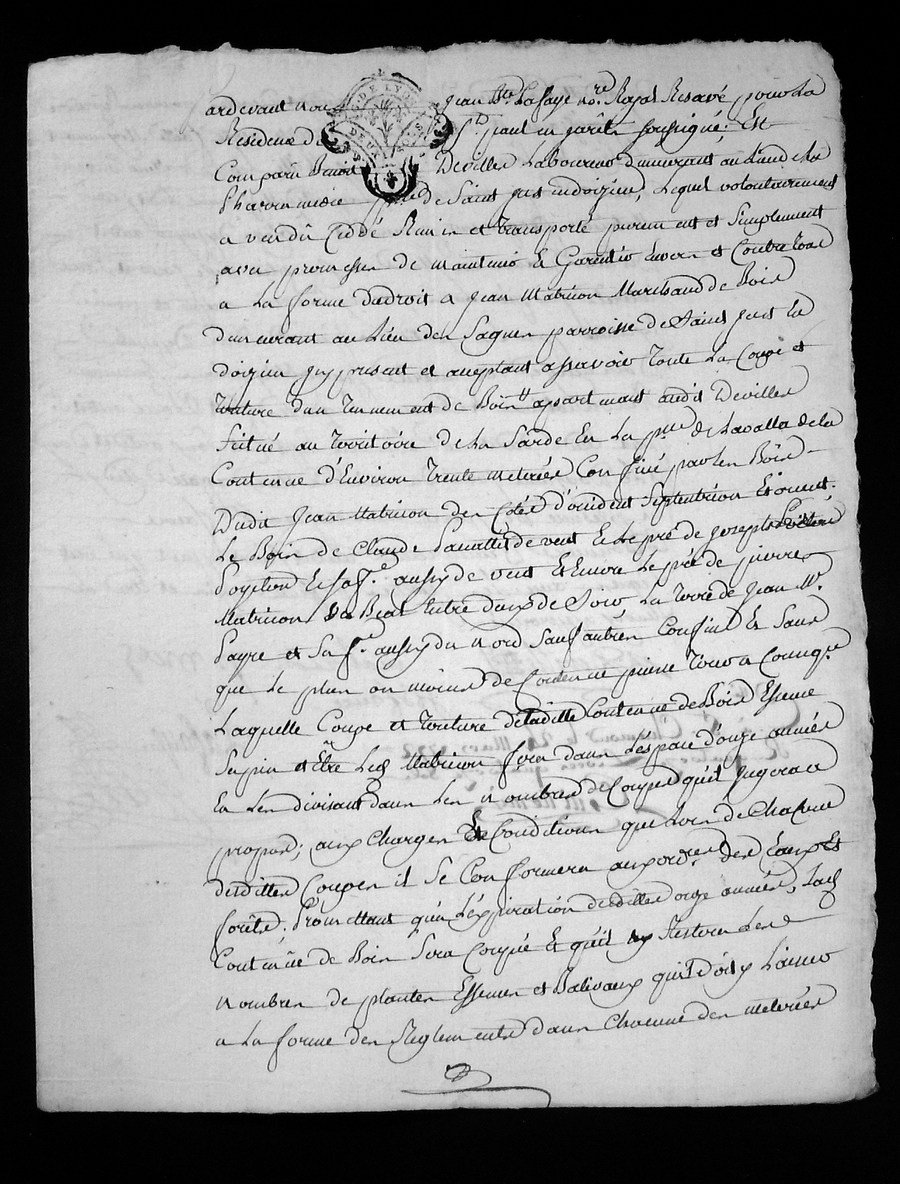 ardevant nou Jean Bte Lafaye nre Royal Reservé pour La
Residence de St paul en jarêts soussigné Est
Comparu Benoit Deville Laboureur demeurant au Lieu de la
pnne de Saint just en doizieu, Lequel volontairement
a vendu Ceddé Remis et transporté purement et Simplement
avec promesses de maintenir Et Garentir Envers et Contre tous
a La forme du droit a Jean Matricon Marchand de Bois
demeurant au Lieu des Saignes parroisse de Saint just En
doizieu icy present et acceptant assavoir toute La Coupe et
tonture d'un tenement de Bois appartenant audit Deville
Scitué au territoire de La Sarde En La psse de Lavalla de la
Contenue d'Environ trente meterées Confiné par les Bois
Dudit Jean Matricon des Cotés d'occident Septentrion Et orient.
Le Bois de Claude de vent Et le pré de joseph
Et sa fe aussy de vent Et Encore Le pré de pierre
Matricon Entre deux de Soir, La terre de Jean Me
payre et Sa fe aussy du Nord Sauf autres Confins Et Sans
que Le plus ou moins de Contenue puisse
Laquelle Coupe et tonture de Ladille Contenue de Bois Essence
Sapin et Être Led Matricon fera dans L'espace d'onze années
En Les divisant dans Les nombres de Coupes qu'il jugera a
propos; aux Charges Et Conditions que Lors de Chacune
desdittes Coupes il Se Conformera aux ordces des Eaux Et
forêts. Promettant qu'a L'expiration desdittes onze années, Lad
Contenue de Bois Sera Coupée Et qu'il y Restera Les
nombres de plantes Essences et Balivaux qu'il doit y Laisser
a La forme des Reglements dans Chacune des meterées